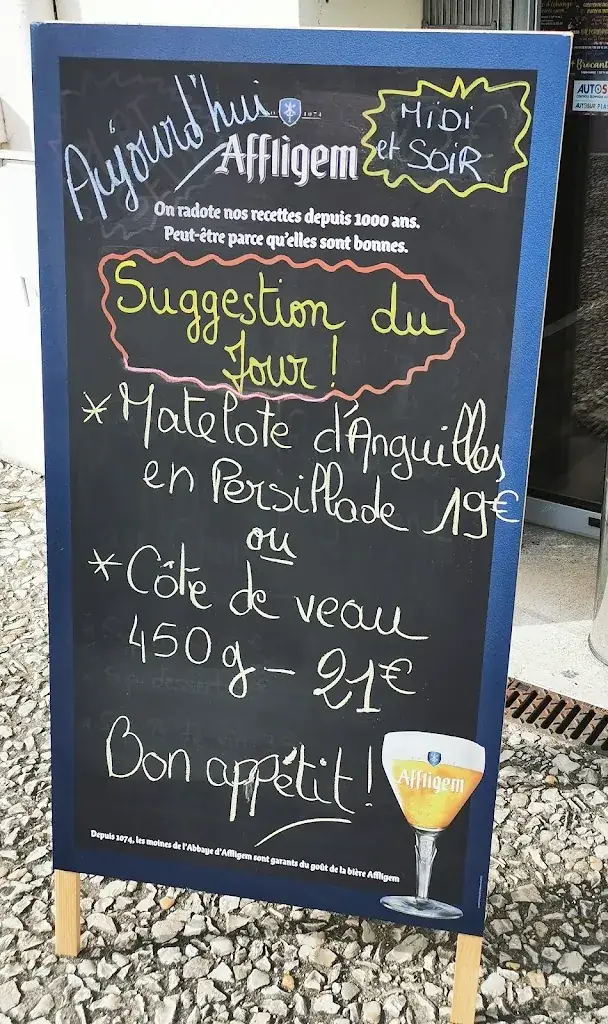 Aujourd'hui
1074
Affligem
MiDi
et SOiR
On radote nos recettes depuis 1000 ans.
Peut-être parce qu'elles sont bonnes.
Suggestion du
Jour !
* Matelote d'Anguilles
en Persillade 19€
ou
* Côte de veau
450g - 21€
Bon appétit !
Affligem
Depuis 1074, les moines de l'Abbaye d'Affligem sont garants du goût de la bière Affligem
+ Brocant
AUTOS